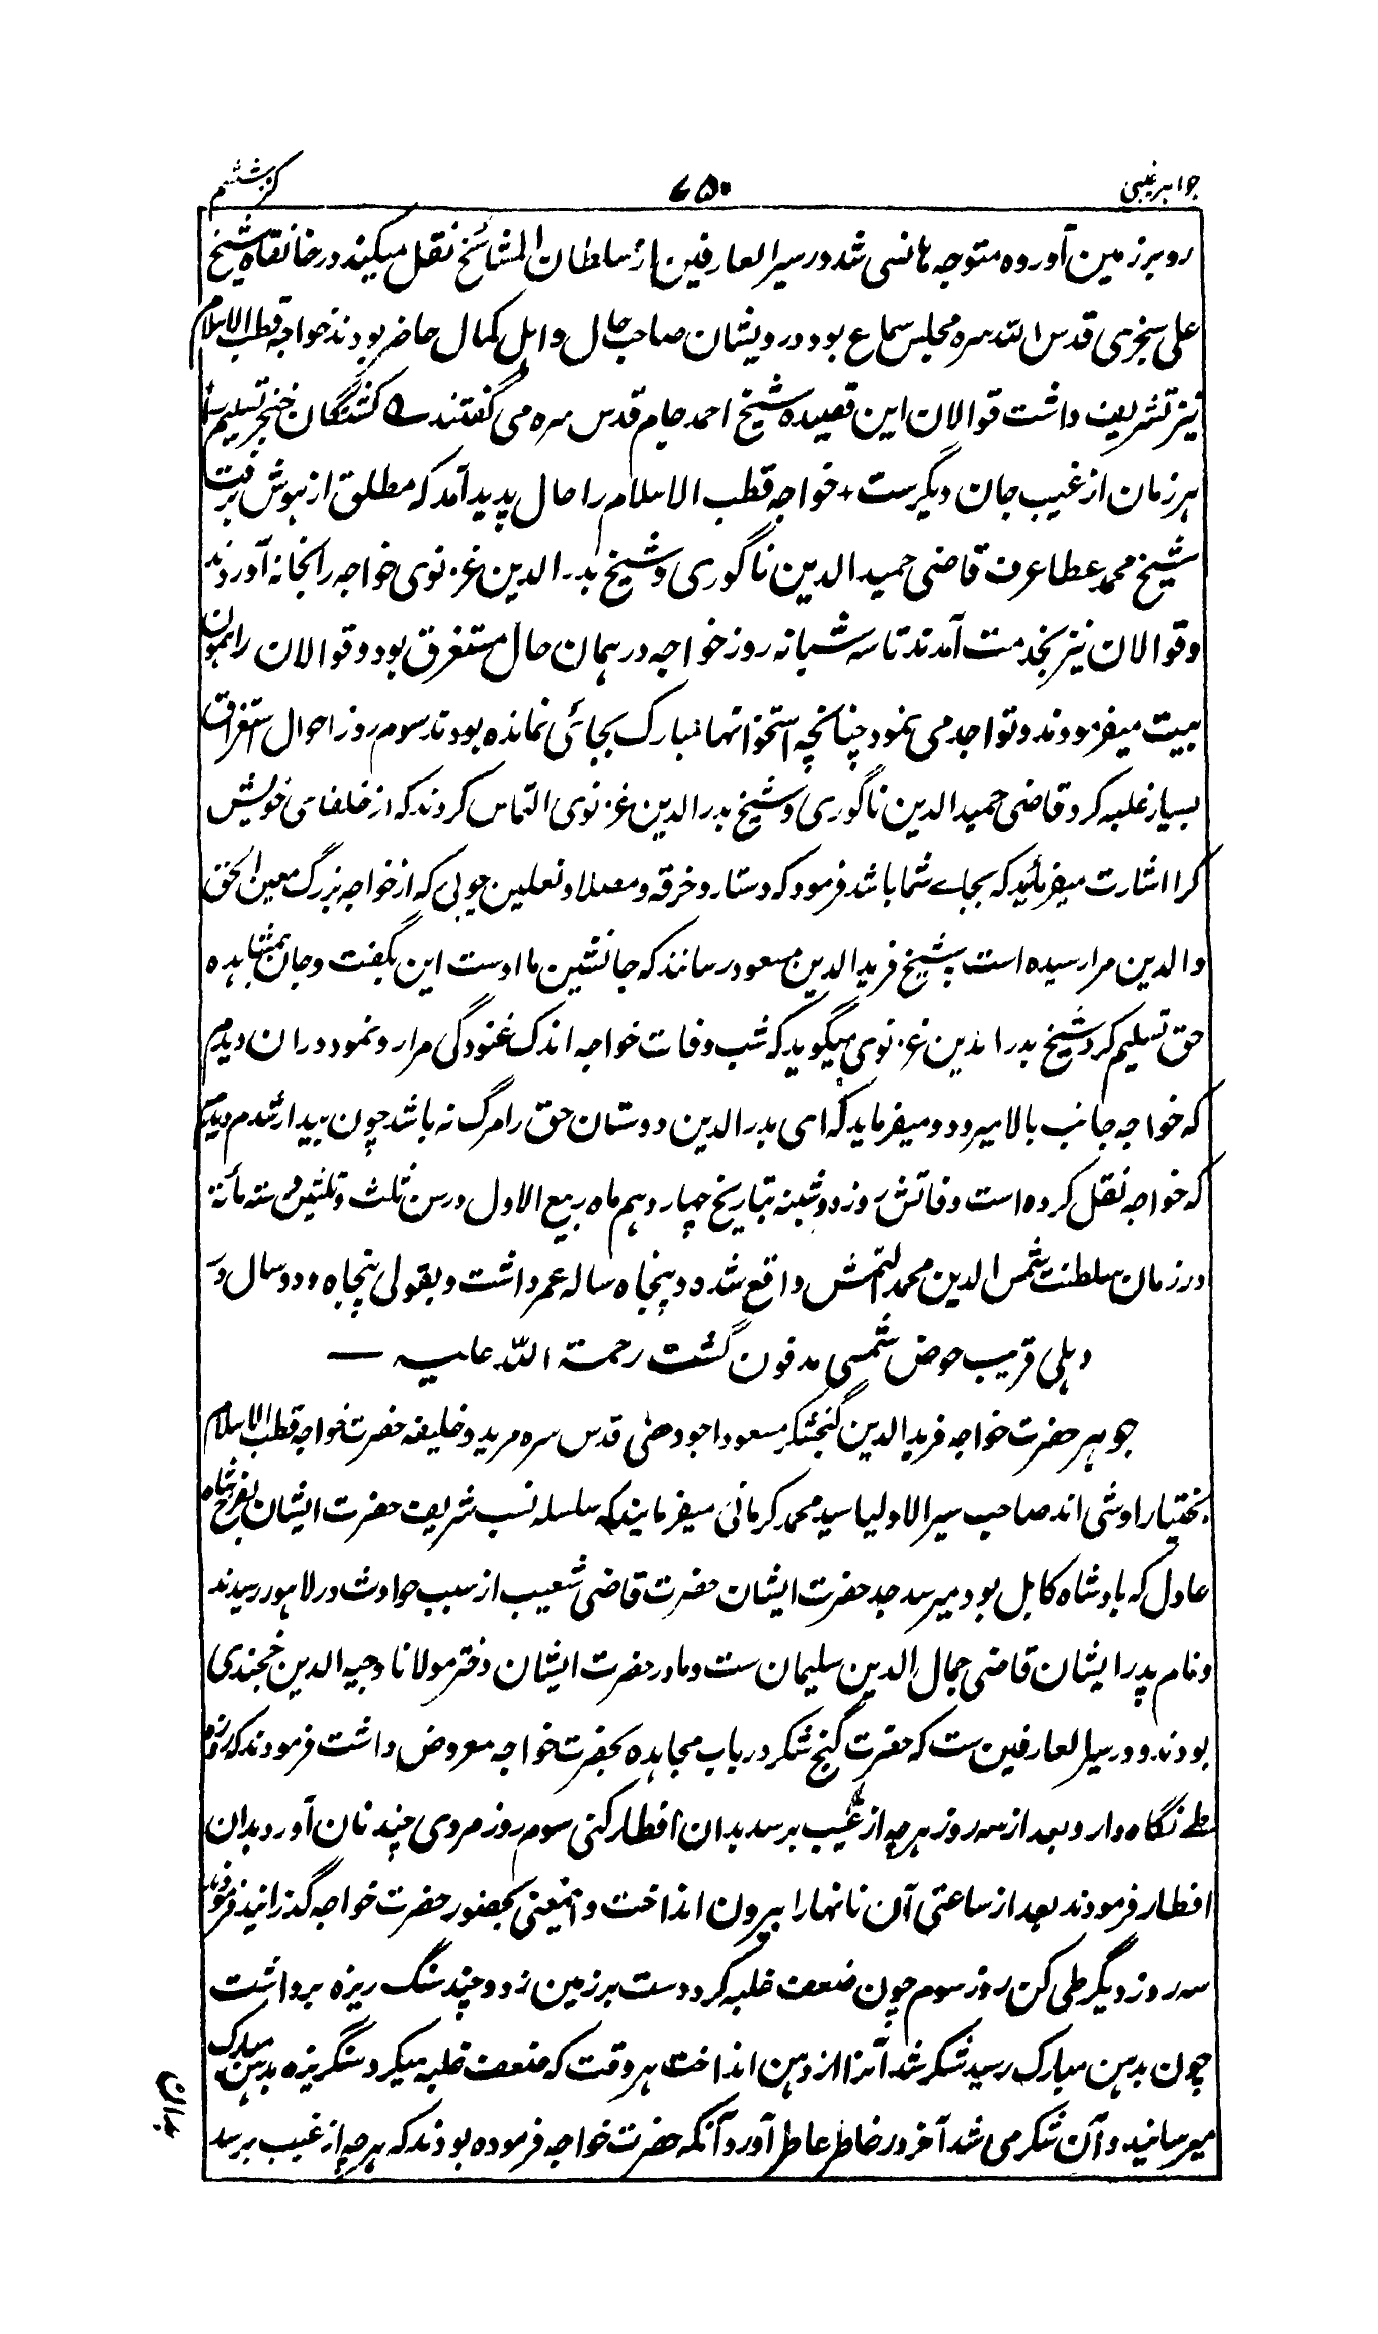 جواہر غیبی
۷۵۰
کنز ششم
رو بر زمین آورده متوجه هانسی شد در سیر العارفین از سلطان المشائخ نقل میکند در خانقاه شیخ
علی سجزی قدس الله سره مجلس سماع بود درویشان صاحب حال و اہل کمال حاضر بودند خواجه قطب الاسلام
نیز تشریف داشت قوالان این قصیده شیخ احمد جام قدس سره می گفتند ے کشتگان خنجر تسلیم را
ہر زمان از غیب جان دیگرست + خواجه قطب الاسلام را حال پدید آمد که مطلق از ہوش برفت
شیخ محمد عطا عرف قاضی حمید الدین ناگوری و شیخ بدر الدین غزنوی خواجه را بخانه آوردند
و قوالان نیز بخدمت آمدند تا سه شبانه روز خواجه در ہمان حال مستغرق بود و قوالان را ہمون
بیت میفرمودند و تواجد می نمود چنانچه استخوانهاء مبارک بجائی نمانده بودند سوم روز احوال استغراق
بسیار غلبه کرد قاضی حمید الدین ناگوری و شیخ بدر الدین غزنوی التماس کردند که از خلفای خویش
کرا اشارت میفرمائید که بجاے شما باشد فرمود که دستار و خرقه و مصلا و نعلین چوبی که از خواجه بزرگ معین الحق
والدین مرا رسیده است بشیخ فرید الدین مسعود رسانند که جانشین ما اوست این بگفت و جان بمشاہده
حق تسلیم کرد شیخ بدر الدین غزنوی میگوید که شب وفات خواجه اندک غنودگی مرا رو نمود در ان دیدم
که خواجه جانب بالا میرود و میفرماید که ای بدر الدین دوستان حق را مرگ نه باشد چون بیدار شدم دیدم
که خواجه نقل کرده است وفاتش روز دوشنبه بتاریخ چهاردهم ماه ربیع الاول در سن ثلث و ثلثین و سته مائة
در زمان سلطنت شمس الدین محمد التمش واقع شده و پنجاه ساله عمر داشت و بقولی پنجاه و دو سال و در
دہلی قریب حوض شمسی مدفون گشت رحمة الله علیه —
جوہر حضرت خواجه فرید الدین گنجشکر مسعود اجودھنی قدس سره مرید و خلیفه حضرت خواجه قطب الاسلام
بختیار اوشی اند صاحب سیر الاولیا سید محمد کرمانی میفرمایند که سلسله نسب شریف حضرت ایشان بفرخ شاه
عادل که بادشاه کابل بود میرسد جد حضرت ایشان حضرت قاضی شعیب از سبب حوادث در لاہور رسیدند
و نام پدر ایشان قاضی جمال الدین سلیمان ست و مادر حضرت ایشان دختر مولانا وجیه الدین خجندی
بودند و در سیر العارفین ست که حضرت گنج شکر در باب مجاہده بحضرت خواجه معروض داشت فرمودند که روزه
طے نگاه دار و بعد از سه روز ہرچه از غیب برسد بدان افطار کنی سوم روز مردی چند نان آورد بدان
افطار فرمودند بعد از ساعتی آن نانها را بیرون انداخت و اینمعنی بحضور حضرت خواجه گذرانید فرمودند
سه روز دیگر طی کن روز سوم چون ضعف غلبه کرد دست بر زمین زد و چند سنگ ریزه برداشت
چون بدہن مبارک رسید شکر شد آنرا از دہن انداخت ہر وقت که ضعف غلبه میکرد سنگریزه بدہن مبارک
میرسانید و آن شکر می شد آخر در خاطر عاطر آورد آنکه حضرت خواجه فرموده بودند که ہرچه از غیب برسد
بدان